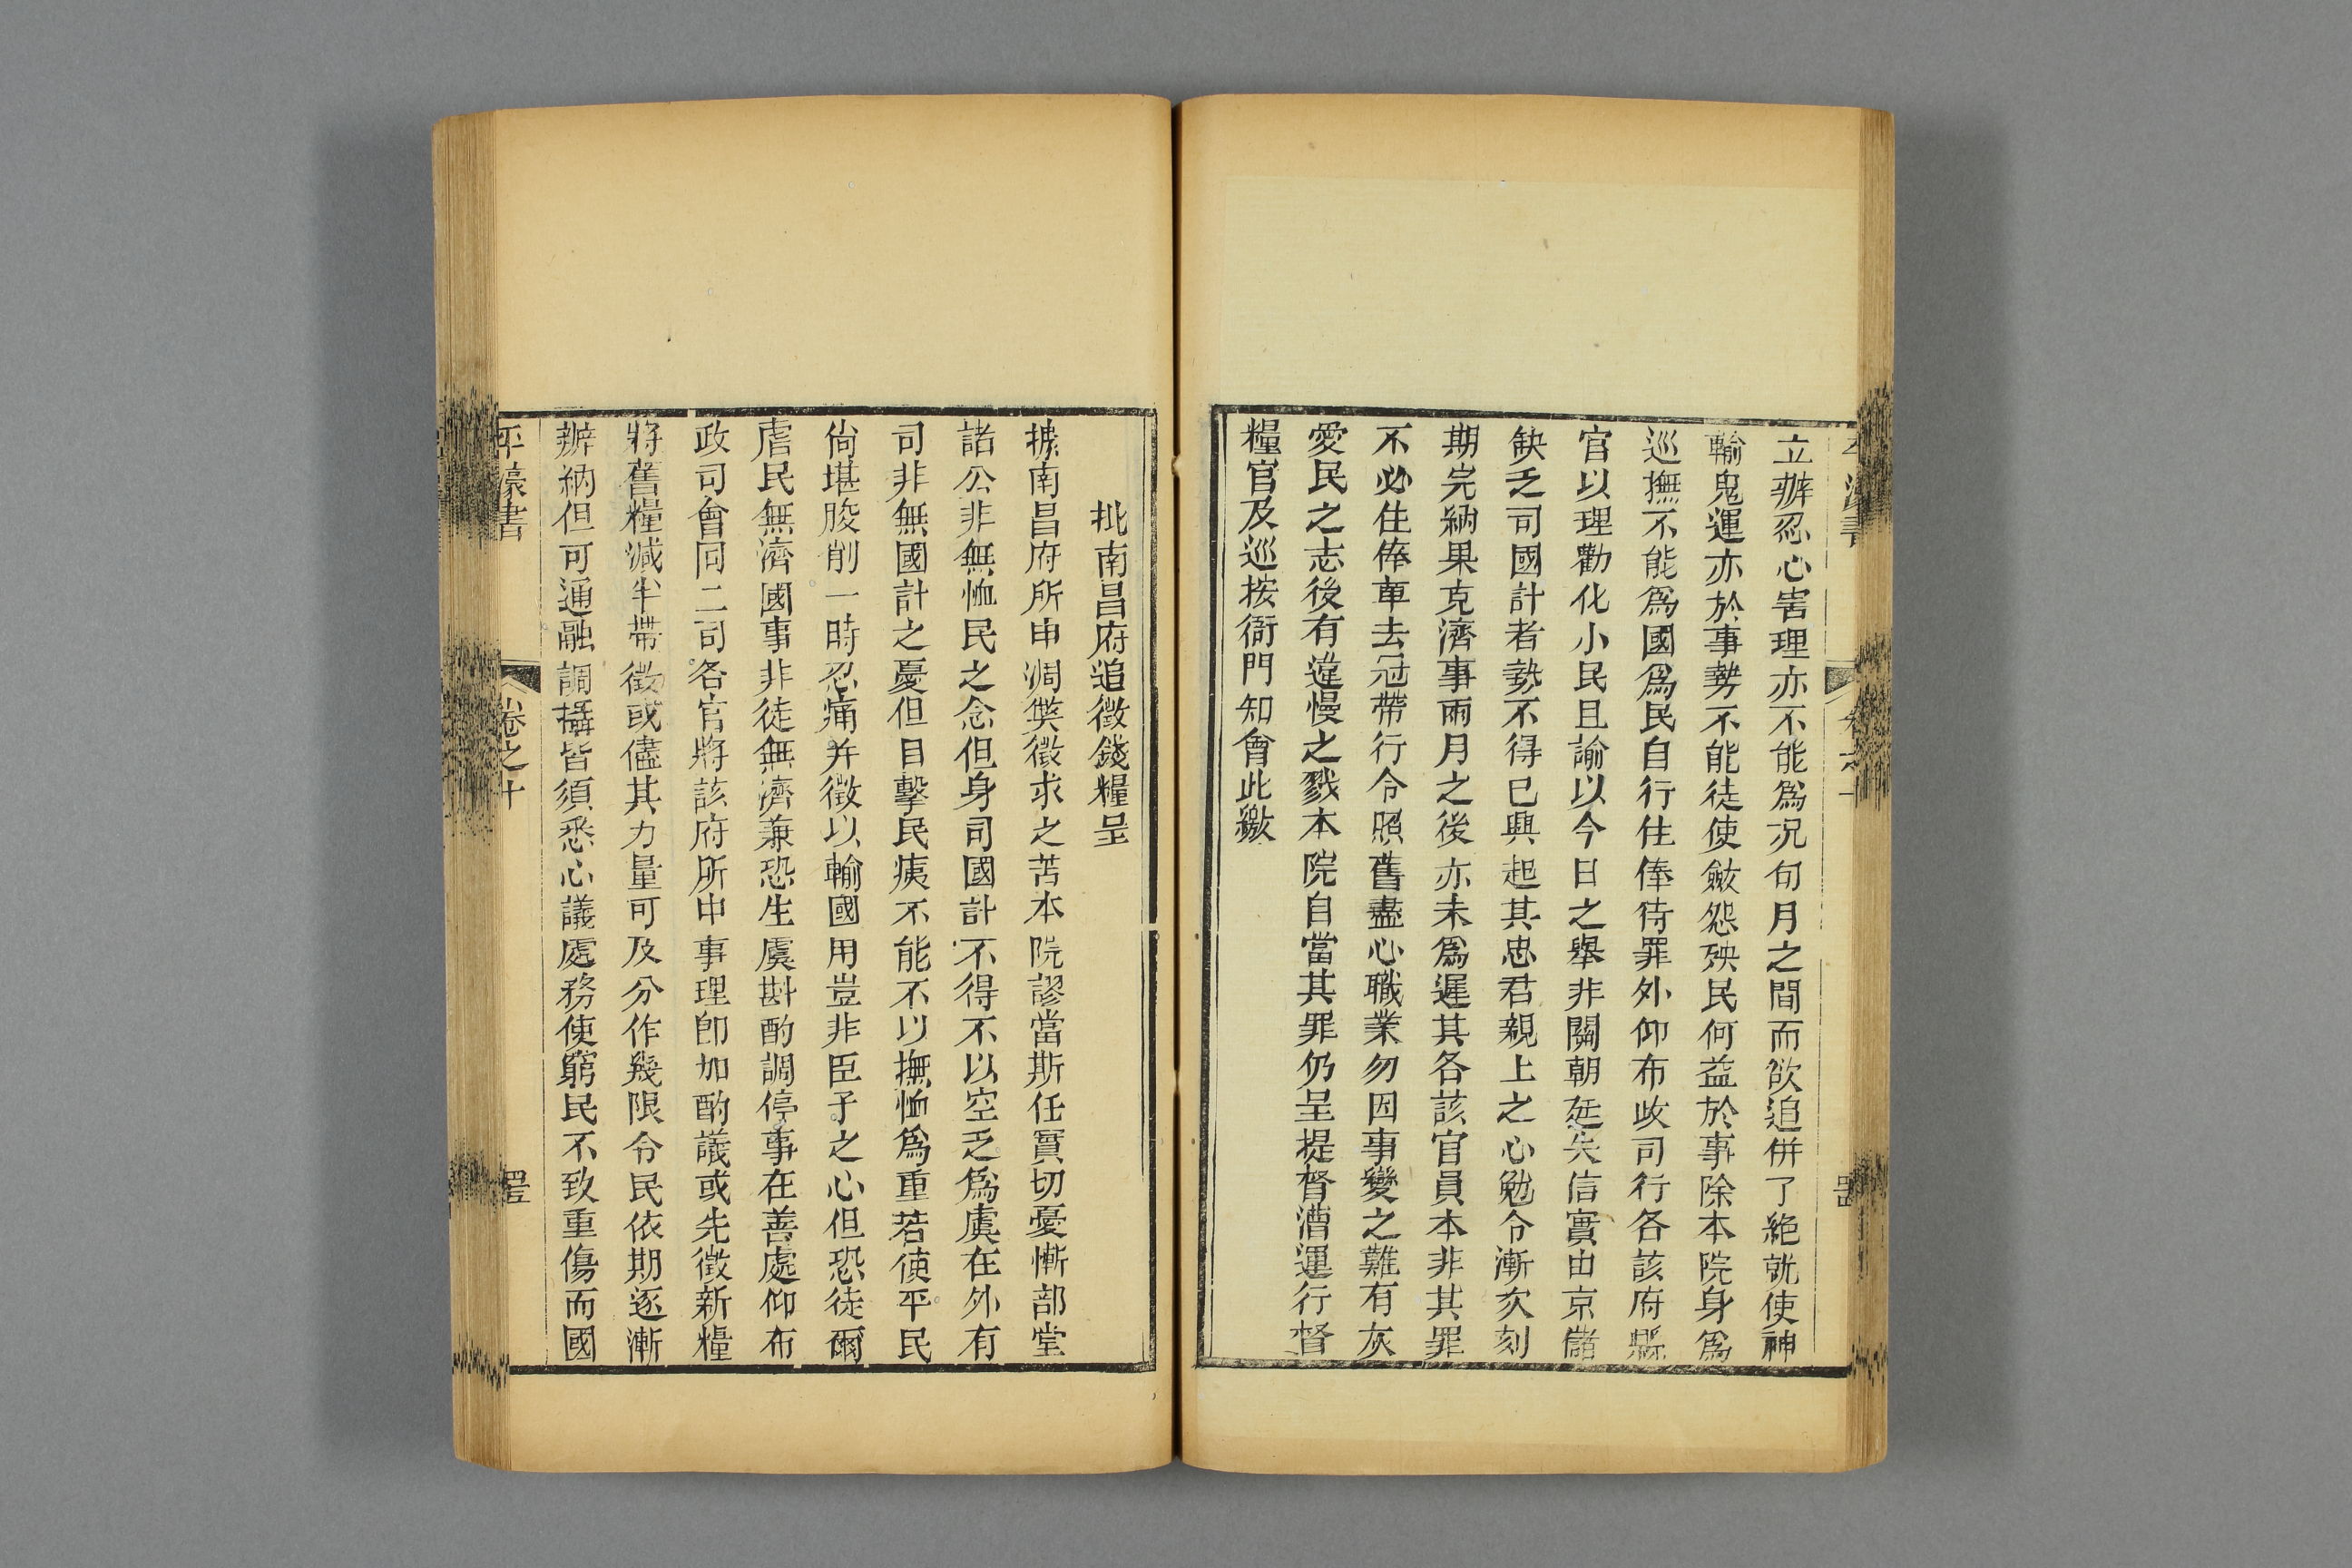 立辦忍心害理亦不能爲况旬月之間而欲追併了絶就使神
輸鬼運亦於事勢不能徒使斂怨殃民何益於事除本院身爲
巡撫不能爲國爲民自行住俸待罪外仰布政司行各該府縣
官以理勸化小民且諭以今日之舉非關朝廷失信實由京儲
缺乏司國計者勢不得已興起其忠君親上之心勉令漸次刻
期完納果克濟事兩月之後亦未爲遲其各該官員本非其罪
不必住俸革去冠帶行令照舊盡心職業勿因事變之難有灰
愛民之志後有違慢之戮本院自當其罪仍呈提督漕運行督
糧官及巡按衙門知會此繳
批南昌府追徵錢糧呈
據南昌府所申凋獘徵求之苦本院謬當斯任實切憂慚部堂
諸公非無恤民之念但身司國計不得不以空乏爲虞在外有
司非無國計之憂但目擊民痍不能不以撫恤爲重若使平民
尙堪朘削一時忍痛并徵以輸國用豈非臣子之心但恐徒爾
虐民無濟國事非徒無濟兼恐生虞斟酌調停事在善處仰布
政司會同二司各官將該府所申事理卽加酌議或先徵新糧
將舊糧減半帶徵或儘其力量可及分作幾限令民依期逐漸
辦納但可通融調攝皆須悉心議處務使窮民不致重傷而國
平濠書
卷之十